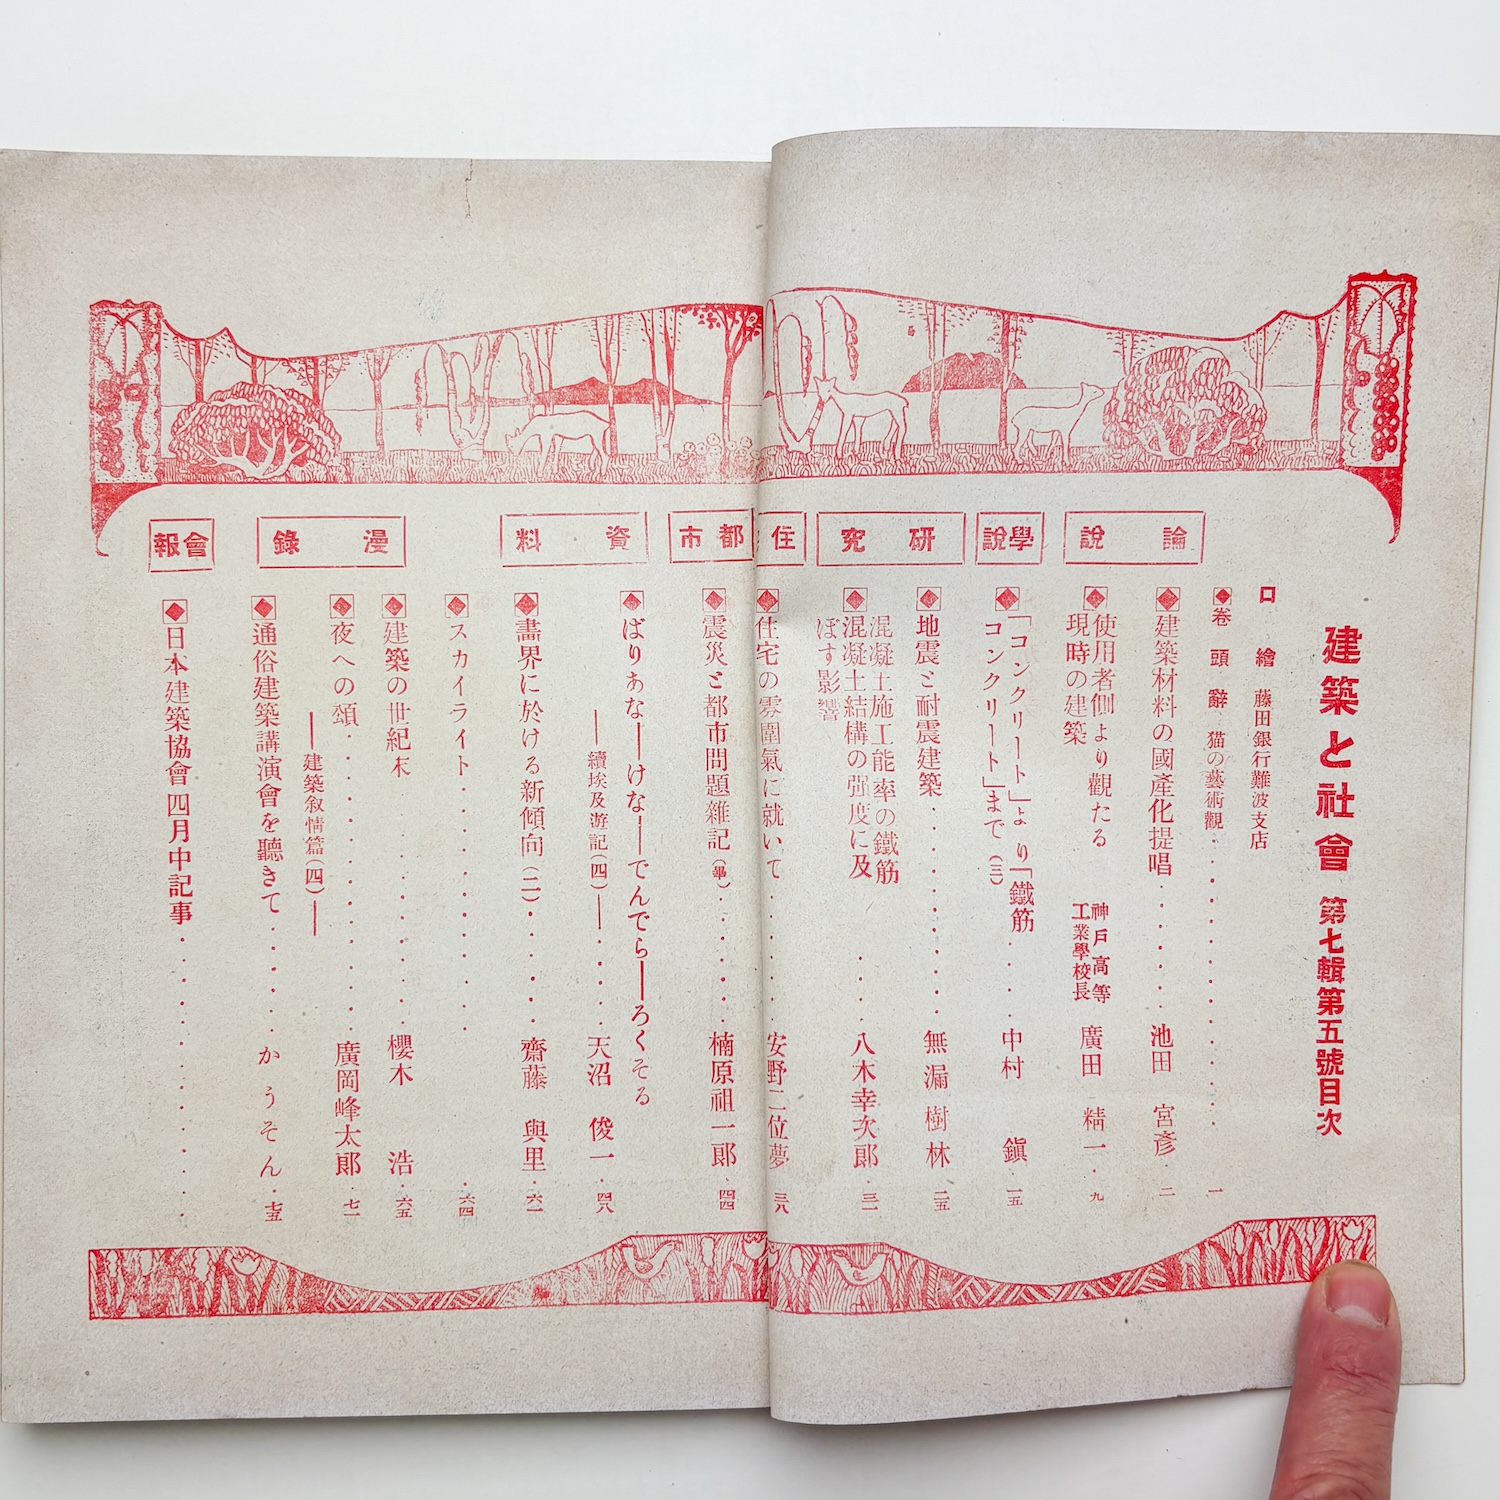 建築と社會 第七輯第五號目次
口繪 藤田銀行難波支店
卷頭辭 猫の藝術觀 一
論說
建築材料の國產化提唱 池田宮彥 二
使用者側より觀たる
現時の建築
神戶高等
工業學校長
廣田精一 九
學說
「コンクリート」より「鐵筋
コンクリート」まで(三) 中村鎭 一五
研究
地震と耐震建築 無漏樹林 二五
混凝土施工能率の鐵筋
混凝土結構の强度に及
ぼす影響
八木幸次郞 三一
住
住宅の雰圍氣に就いて 安野二位夢 三八
都市
震災と都市問題雜記(畢) 楠原祖一郞 四四
資料
ばりあな——けな——でんでら——ろくそる
——續埃及遊記(四)—— 天沼俊一 四八
畵界に於ける新傾向(二) 齋藤與里 六一
スカイライト 六四
漫錄
建築の世紀末 櫻木浩 六五
夜への頌 廣岡峰太郞 七一
——建築叙情篇(四)——
通俗建築講演會を聽きて かうそん 七五
會報
日本建築協會四月中記事